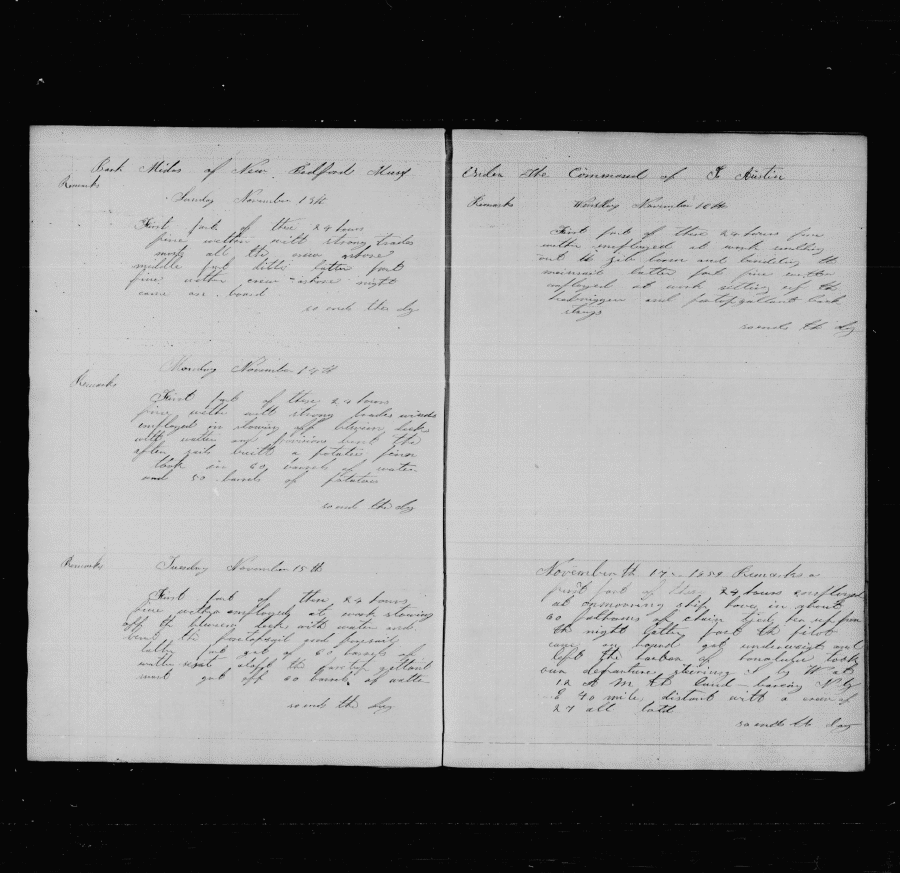 Bark Midas of New Bedfords Mass
Remarks
Sunday November 13th
First part of these 24 hours
fine wether with strong trades
most all the crew ashore
middle part ditto latter part
fine wether crew ashore night
came on board
so ends this day
Monday November 14th
Remarks
First part of these 24 hours
fine wether with strong trades winds
employed in stowing off between decks
with watter and provisions bent the
after sails built a potatoe
took in 60 barrels of water
and 50 barrels of potatoes
so ends this day
Remarks
Tuesday November 15th
First part of these 24 hours
fine wether employed at work stowing
off the between decks with water and
bent the foretopsail and foresail
latter part got of 60 barrels of
water sent aloft the foretop gallant
mast got off 60 barrels of watter
so ends the day
Under The Command of Austin
Remarks
November 16th
First part of these 24 hours fine
wether employed at work
out the jib boom and bending the
mainsail latter part fine wether
employed at work setting up the
and foretopgallant back
stays
so ends the day
November th 17 1859 Remarks
first part of these 24 hours employed
at unmooring ship hove in about
60 fathoms of chain
the night latter part the pilot
came on board got underweigh and
left the harbor of honolulu took
our departure stearing S by W at
12 at M the land bearing N by
E 40 miles distant with a crew of
27 all told
so ends the day